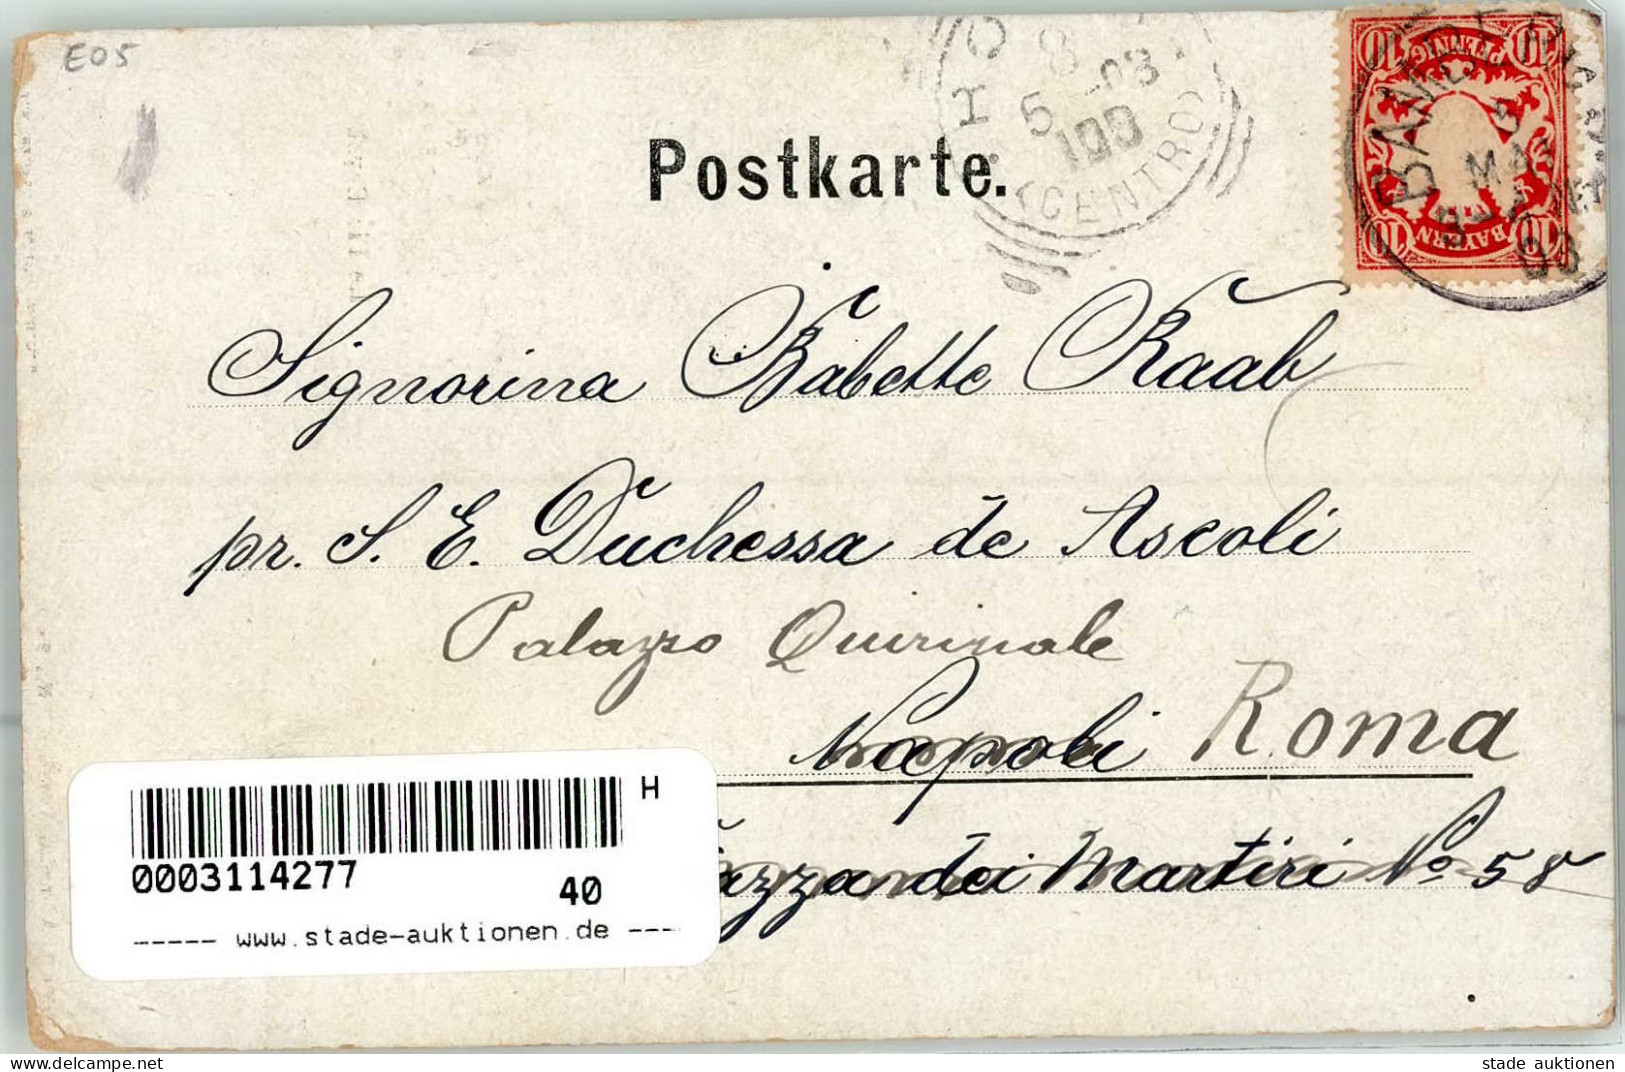 E05
Postkarte.
8
5 -03
100
(CENTRO)
10 PFENNIG 10
10 BAYERN 10
BAMBERG
MAI
03
Signorina Babette Raab
pr. S. E. Duchessa de Ascoli
Palazzo Quirinale
Napoli Roma
azza dei Martiri No 58
H
0003114277
40
----- www.stade-auktionen.de ----
delcampe.net
stade auktionen